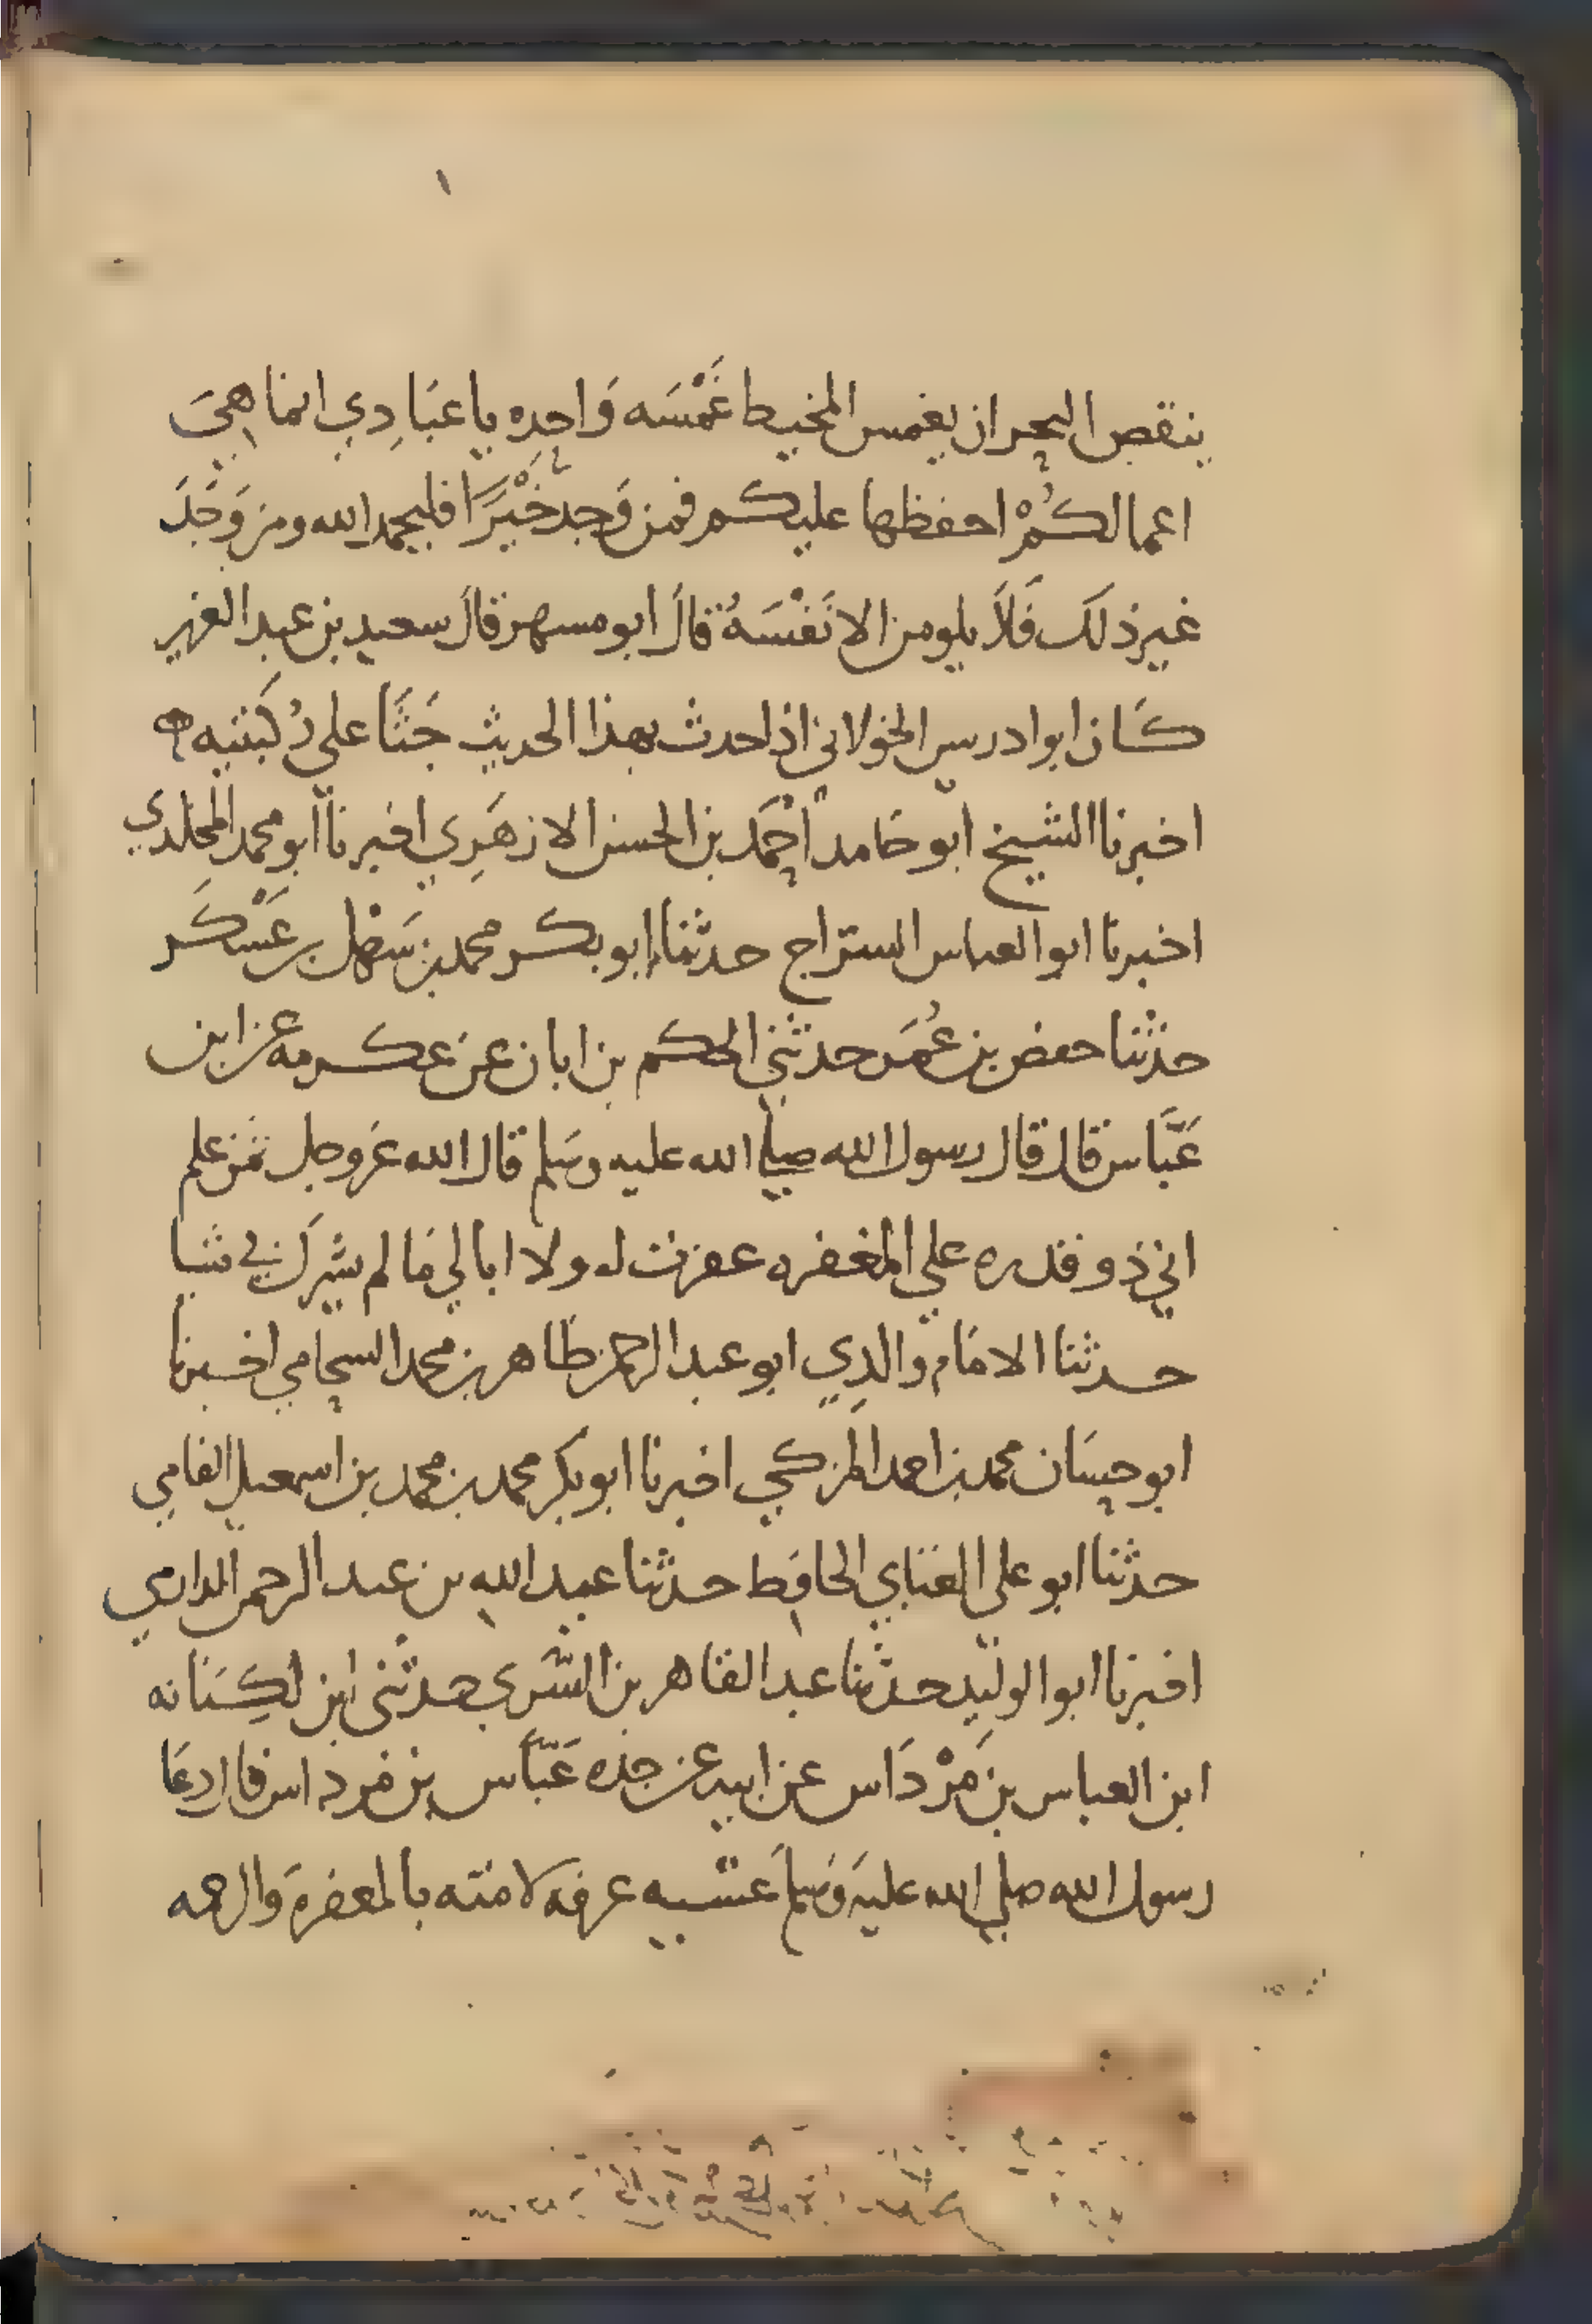 ينقص البحر ان يغمس المخيط غَمْسَه وَاحِده يا عبَادِي انما هِيَ
اعمالكُمْ احفظها عليكم فمن وَجد خَيْرًا فليحمد الله ومن وَجَدَ
غير ذلك فَلاَ يلومن الا نَفْسَهُ قالَ ابو مسهر قالَ سعيد بن عبد العزيز
كَان ابو ادريس الخولاني اذا حدث بهذا الحديث جَثَا على رُكبَتيه
اخبرنا الشيخ ابو حَامد أحْمَد بن الحسن الازهَرِي اخبرنا ابو محمد المخلدي
اخبرنا ابو العباس السراج حدثنا ابو بكر محمد بن سَهْل بن عَسْكَر
حدثنا حفص بن عُمَر حدثني الحكم بن ابان عن عكرمه عن ابن
عَبَّاس قال قال رسول الله صلي الله عليه وسَلم قال الله عَز وجل مَن علم
اني ذو قدره علي المغفره غفرت له ولا ابالي مَا لم يشرك بي شيا
حدثنا الامَام والدِي ابو عبد الرحمن طَاهر بن محمد الشحامي اخبرنا
ابو حسَان محمد بن احمد المزكي اخبرنا ابو بكر محمد بن محمد بن اسمعيل القامي
حدثنا ابو علي القبَاي الحافظ حدثنا عبد الله بن عبد الرحمن الدارمي
اخبرنا ابو الوليد حدثنا عبد القاهر بن السَّرِي حدثني ابن لكِنَانه
ابن العباس بن مَرْدَاس عن ابيه عن جده عَبَّاس بن مرداس قال دعَا
رسول الله صلي الله عليه وسَلم عَشيه عرفه لامته بالمغفرة وَالرحمه